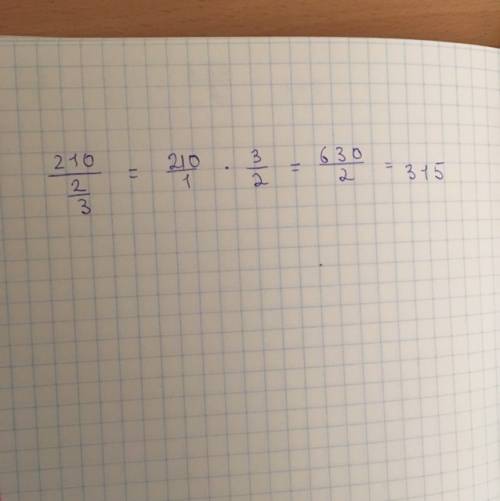 210/(2/3) = 210/1 · 3/2 = 630/2 = 315